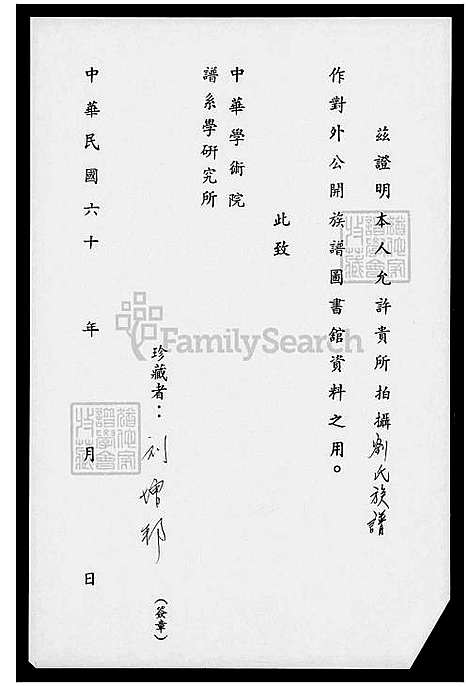 茲證明本人允許貴所拍攝劉氏族譜
作對外公開族譜圖書館資料之用。
此致
中華學術院
譜系學研究所
珍藏者：刘增邦
（簽章）
中華民國六十 年 月 日
FamilySearch